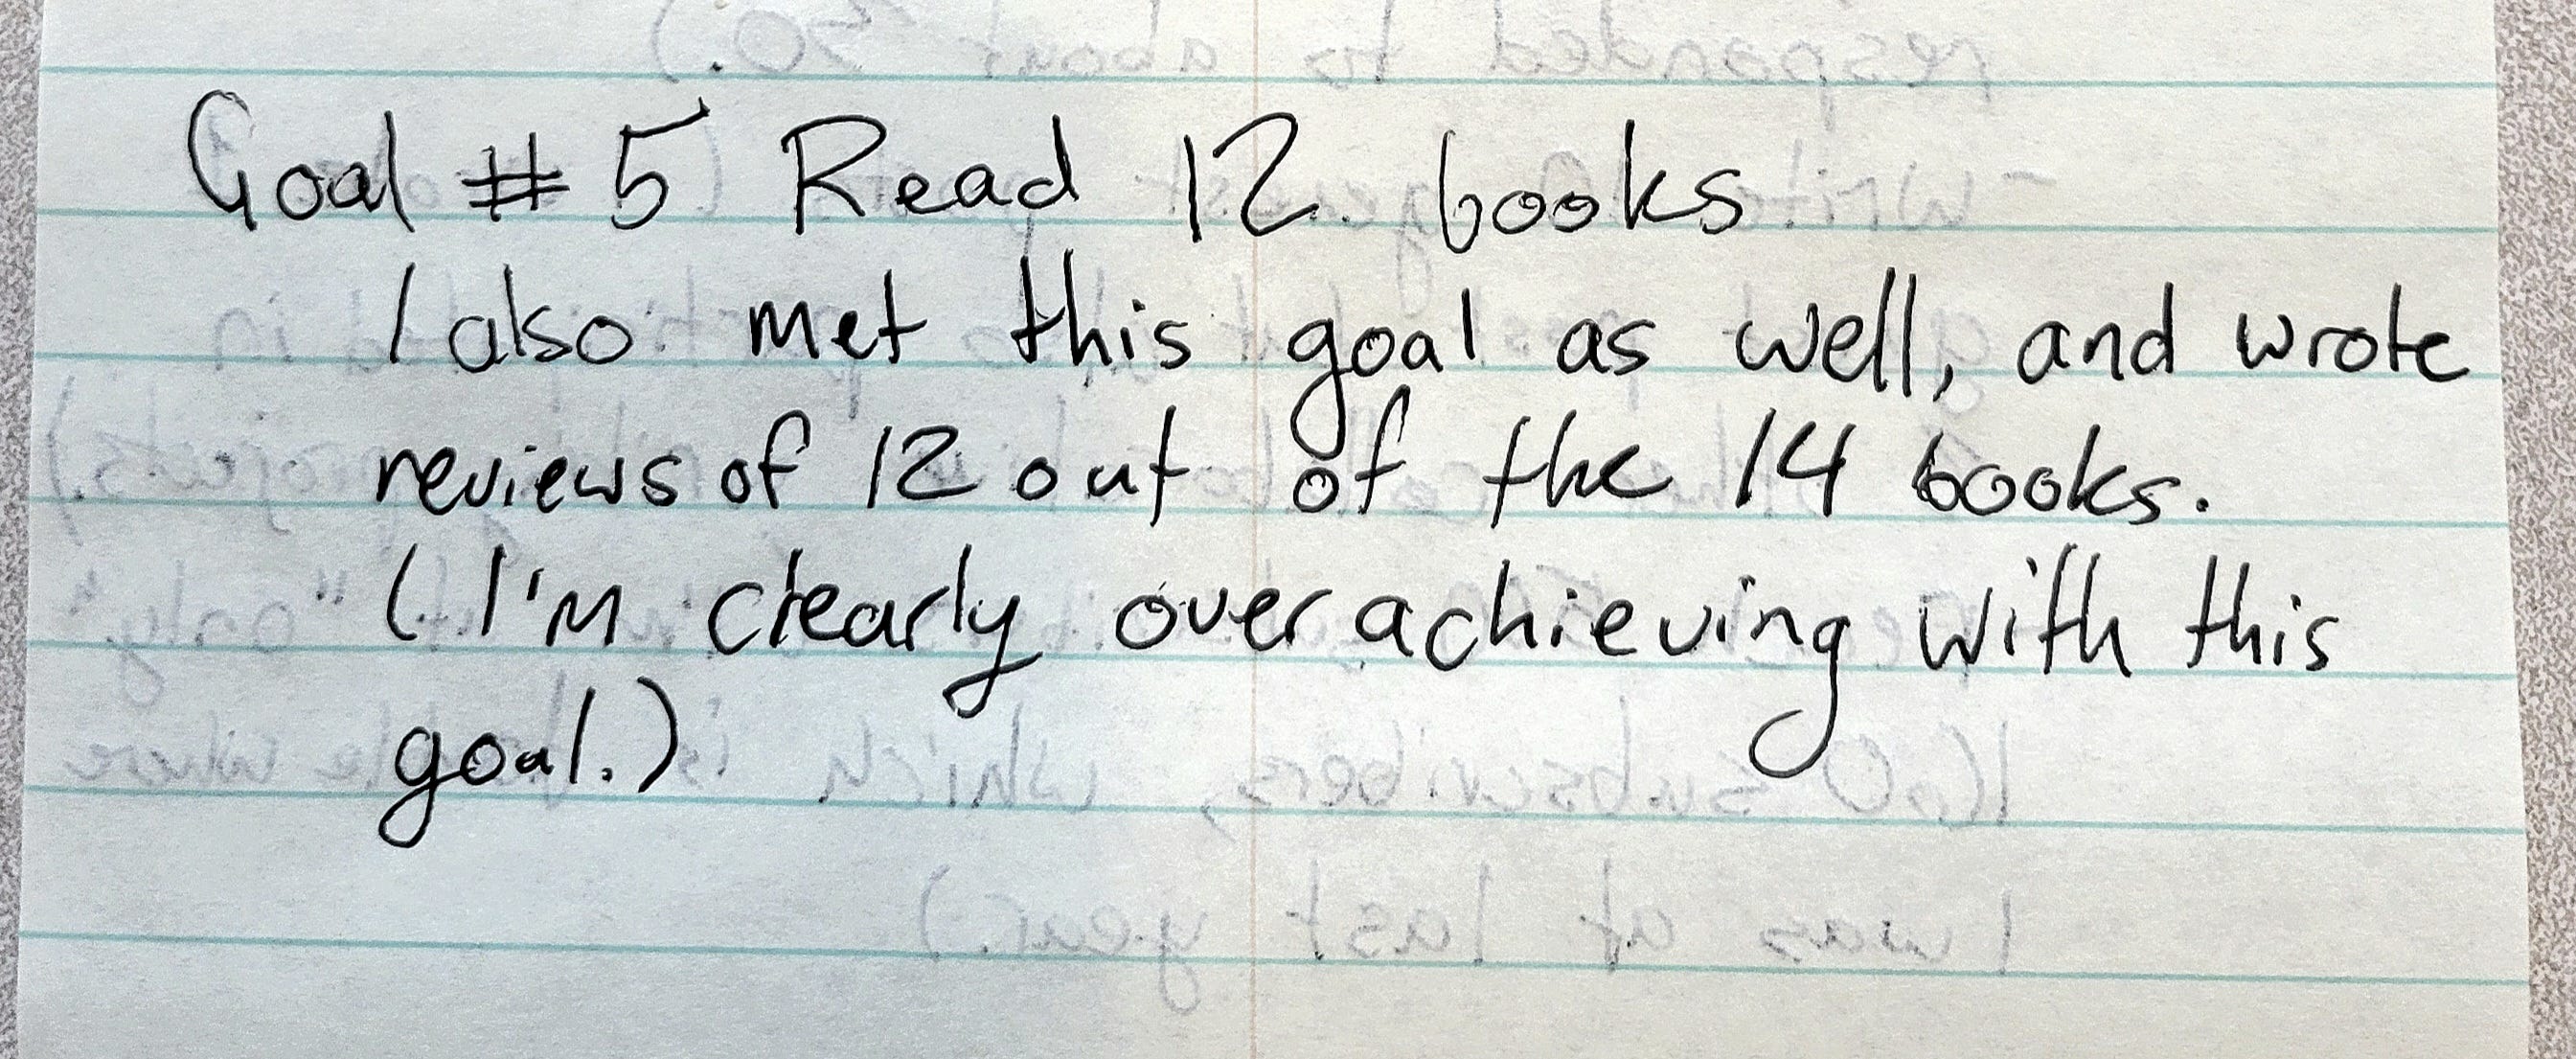 Goal # 5 Read 12 books
I also met this goal as well, and wrote
reviews of 12 out of the 14 books.
(I'm clearly over achieving with this
goal.)